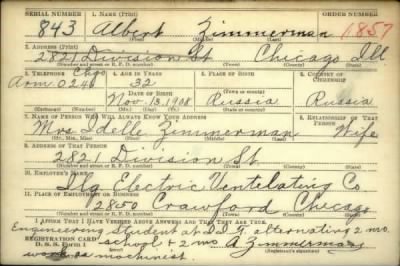 SERIAL NUMBER 1. NAME (Print) ORDER NUMBER
843 Albert Zimmerman 1857
2. ADDRESS (Print)
2821 Division St Chicago Ill
(Number and street or R. F. D. number) (Town) (County) (State)
3. TELEPHONE 4. AGE IN YEARS 5. PLACE OF BIRTH 6. COUNTRY OF CITIZENSHIP
Chgo 32
Arm 0240 DATE OF BIRTH
Nov 13, 1908 Russia Russia
(Exchange) (Number) (Mo.) (Day) (Yr.) (State or county) (Country)
7. NAME OF PERSON WHO WILL ALWAYS KNOW YOUR ADDRESS 8. RELATIONSHIP OF THAT PERSON
Mrs Idelle Zimmerman Wife
(Mr., Mrs., Miss) (First) (Middle) (Last)
9. ADDRESS OF THAT PERSON
2821 Division St
(Number and street or R. F. D. number) (Town) (County) (State)
10. EMPLOYER'S NAME
Ilg Electric Ventelating Co
11. PLACE OF EMPLOYMENT OR BUSINESS
2850 Crawford Chicago
(Number and street or R. F. D. number) (Town) (County) (State)
I AFFIRM THAT I HAVE VERIFIED ABOVE ANSWERS AND THAT THEY ARE TRUE.
Engineering Student at I.I.T. alternating 2 mo.
REGISTRATION CARD
D. S. S. Form 1 school & 2 mo A Zimmerman
(Registrant's signature)
work as machinist.